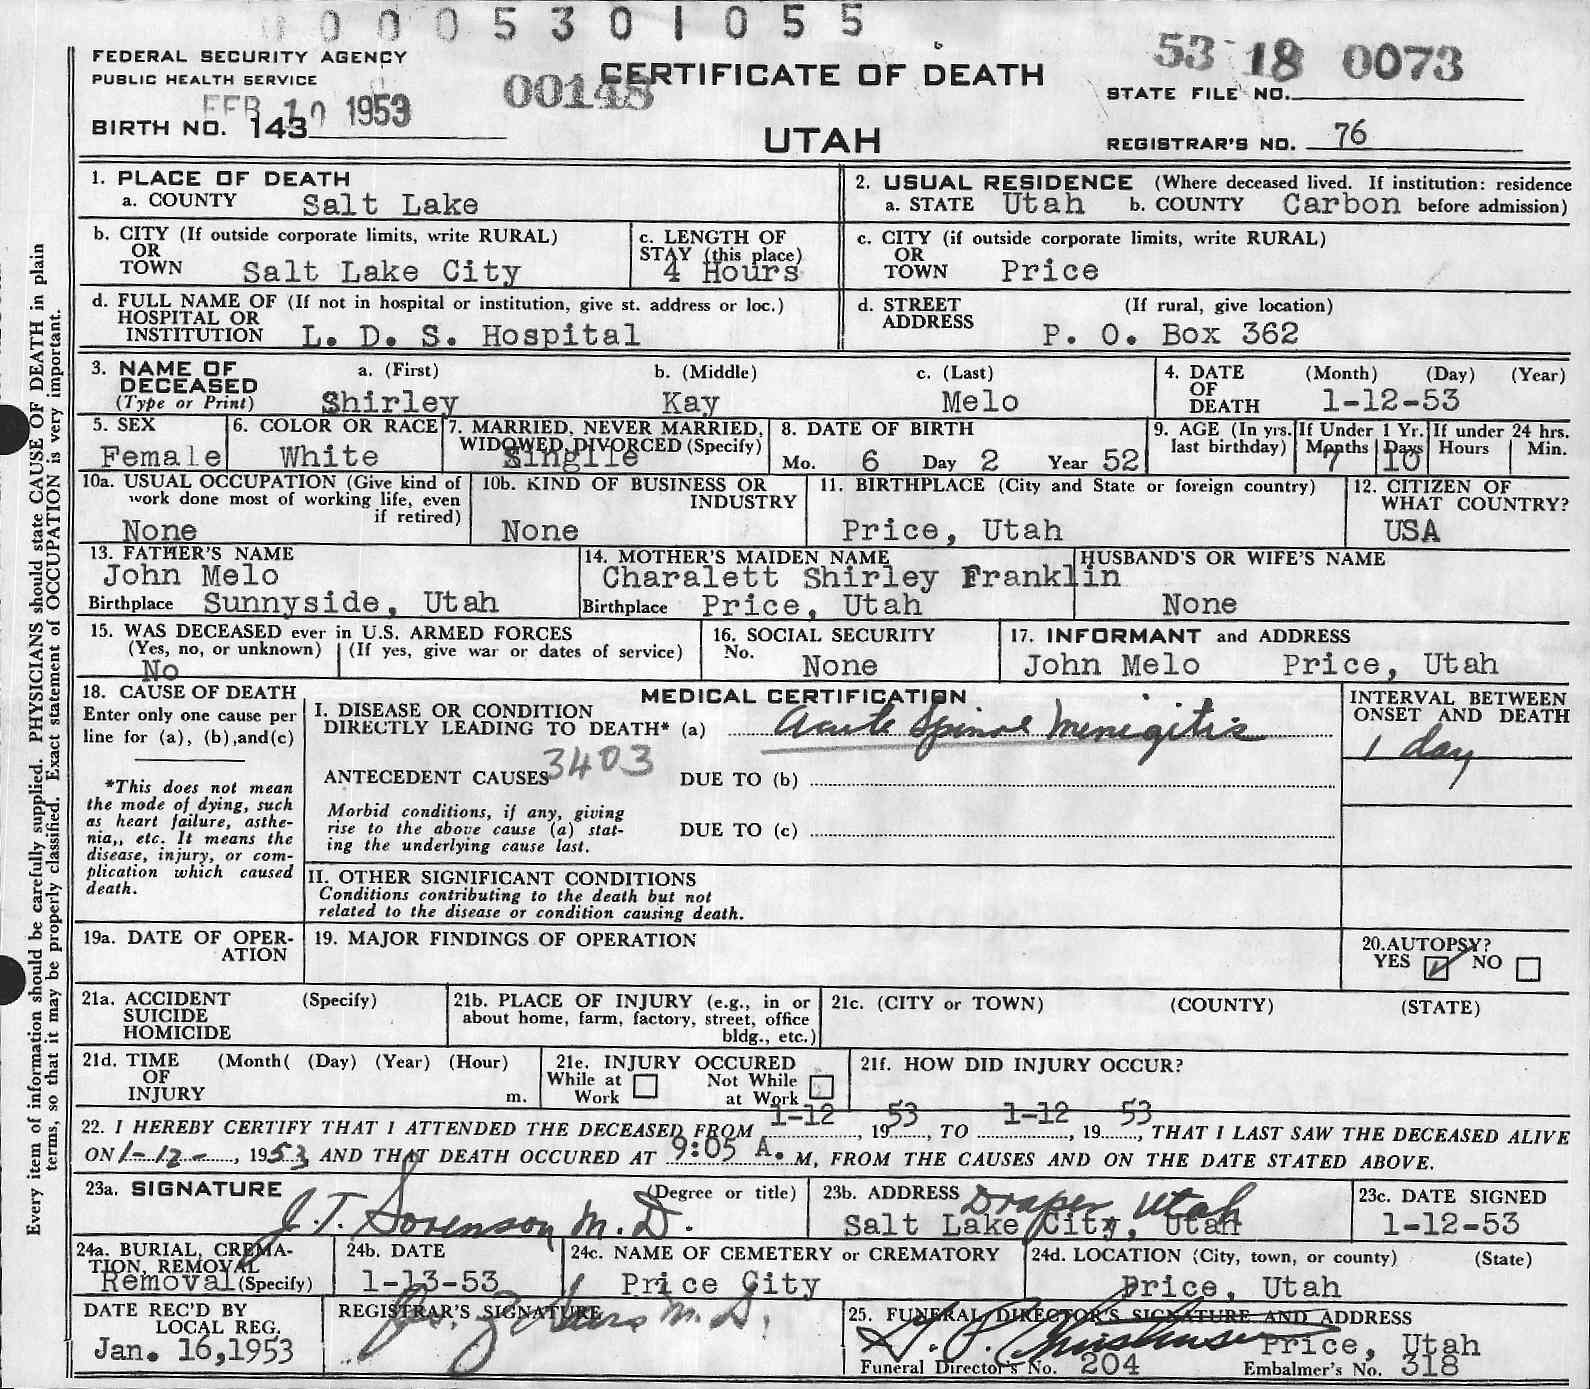 0005301055
FEDERAL SECURITY AGENCY
PUBLIC HEALTH SERVICE
CERTIFICATE OF DEATH
UTAH
53 18 0073
STATE FILE NO.
FEB 10 1953
00148
BIRTH NO. 143
REGISTRAR'S NO. 76
1. PLACE OF DEATH
a. COUNTY Salt Lake
2. USUAL RESIDENCE (Where deceased lived. If institution: residence
a. STATE Utah b. COUNTY Carbon before admission)
b. CITY (If outside corporate limits, write RURAL)
OR
TOWN Salt Lake City
c. LENGTH OF
STAY (this place)
4 Hours
c. CITY (if outside corporate limits, write RURAL)
OR
TOWN Price
d. FULL NAME OF (If not in hospital or institution, give st. address or loc.)
HOSPITAL OR
INSTITUTION L. D. S. Hospital
d. STREET (If rural, give location)
ADDRESS P. O. Box 362
3. NAME OF DECEASED
(Type or Print)
a. (First) b. (Middle) c. (Last)
Shirley Kay Melo
4. DATE OF DEATH (Month) (Day) (Year)
1-12-53
5. SEX
Female
6. COLOR OR RACE
White
7. MARRIED, NEVER MARRIED,
WIDOWED, DIVORCED (Specify)
Singlle
8. DATE OF BIRTH
Mo. 6 Day 2 Year 52
9. AGE (In yrs. last birthday)
If Under 1 Yr.
Months 7 Days 10
If under 24 hrs.
Hours Min.
10a. USUAL OCCUPATION (Give kind of
work done most of working life, even
if retired)
None
10b. KIND OF BUSINESS OR
INDUSTRY
None
11. BIRTHPLACE (City and State or foreign country)
Price, Utah
12. CITIZEN OF
WHAT COUNTRY?
USA
13. FATHER'S NAME
John Melo
Birthplace Sunnyside, Utah
14. MOTHER'S MAIDEN NAME
Charalett Shirley Franklin
Birthplace Price, Utah
HUSBAND'S OR WIFE'S NAME
None
15. WAS DECEASED ever in U.S. ARMED FORCES
(Yes, no, or unknown) (If yes, give war or dates of service)
No
16. SOCIAL SECURITY
No. None
17. INFORMANT and ADDRESS
John Melo Price, Utah
18. CAUSE OF DEATH
Enter only one cause per
line for (a), (b),and(c)
*This does not mean
the mode of dying, such
as heart failure, asthe-
nia,, etc. It means the
disease, injury, or com-
plication which caused
death.
MEDICAL CERTIFICATION
I. DISEASE OR CONDITION
DIRECTLY LEADING TO DEATH* (a) Acute Spinal Menigitis
3403
ANTECEDENT CAUSES DUE TO (b)
Morbid conditions, if any, giving
rise to the above cause (a) stat-
ing the underlying cause last.
DUE TO (c)
II. OTHER SIGNIFICANT CONDITIONS
Conditions contributing to the death but not
related to the disease or condition causing death.
INTERVAL BETWEEN
ONSET AND DEATH
1 day
19a. DATE OF OPER-
ATION
19. MAJOR FINDINGS OF OPERATION
20.AUTOPSY?
YES NO
21a. ACCIDENT (Specify)
SUICIDE
HOMICIDE
21b. PLACE OF INJURY (e.g., in or
about home, farm, factory, street, office
bldg., etc.)
21c. (CITY or TOWN) (COUNTY) (STATE)
21d. TIME (Month( (Day) (Year) (Hour)
OF
INJURY m.
21e. INJURY OCCURED
While at Work Not While at Work
21f. HOW DID INJURY OCCUR?
22. I HEREBY CERTIFY THAT I ATTENDED THE DECEASED FROM 1-12, 1953, TO 1-12, 1953, THAT I LAST SAW THE DECEASED ALIVE
ON 1-12-, 1953 AND THAT DEATH OCCURED AT 9:05 A. M, FROM THE CAUSES AND ON THE DATE STATED ABOVE.
23a. SIGNATURE (Degree or title)
J. T. Sorenson M.D.
23b. ADDRESS Draper, Utah
Salt Lake City, Utah
23c. DATE SIGNED
1-12-53
24a. BURIAL, CREMA-
TION, REMOVAL
Removal (Specify)
24b. DATE
1-13-53
24c. NAME OF CEMETERY or CREMATORY
Price City
24d. LOCATION (City, town, or county) (State)
Price, Utah
DATE REC'D BY
LOCAL REG.
Jan. 16,1953
REGISTRAR'S SIGNATURE
M. D.
25. FUNERAL DIRECTOR'S SIGNATURE AND ADDRESS
Price, Utah
Funeral Director's No. 204 Embalmer's No. 318
Every item of information should be carefully supplied. PHYSICIANS should state CAUSE OF DEATH in plain
terms, so that it may be properly classified. Exact statement of OCCUPATION is very important.